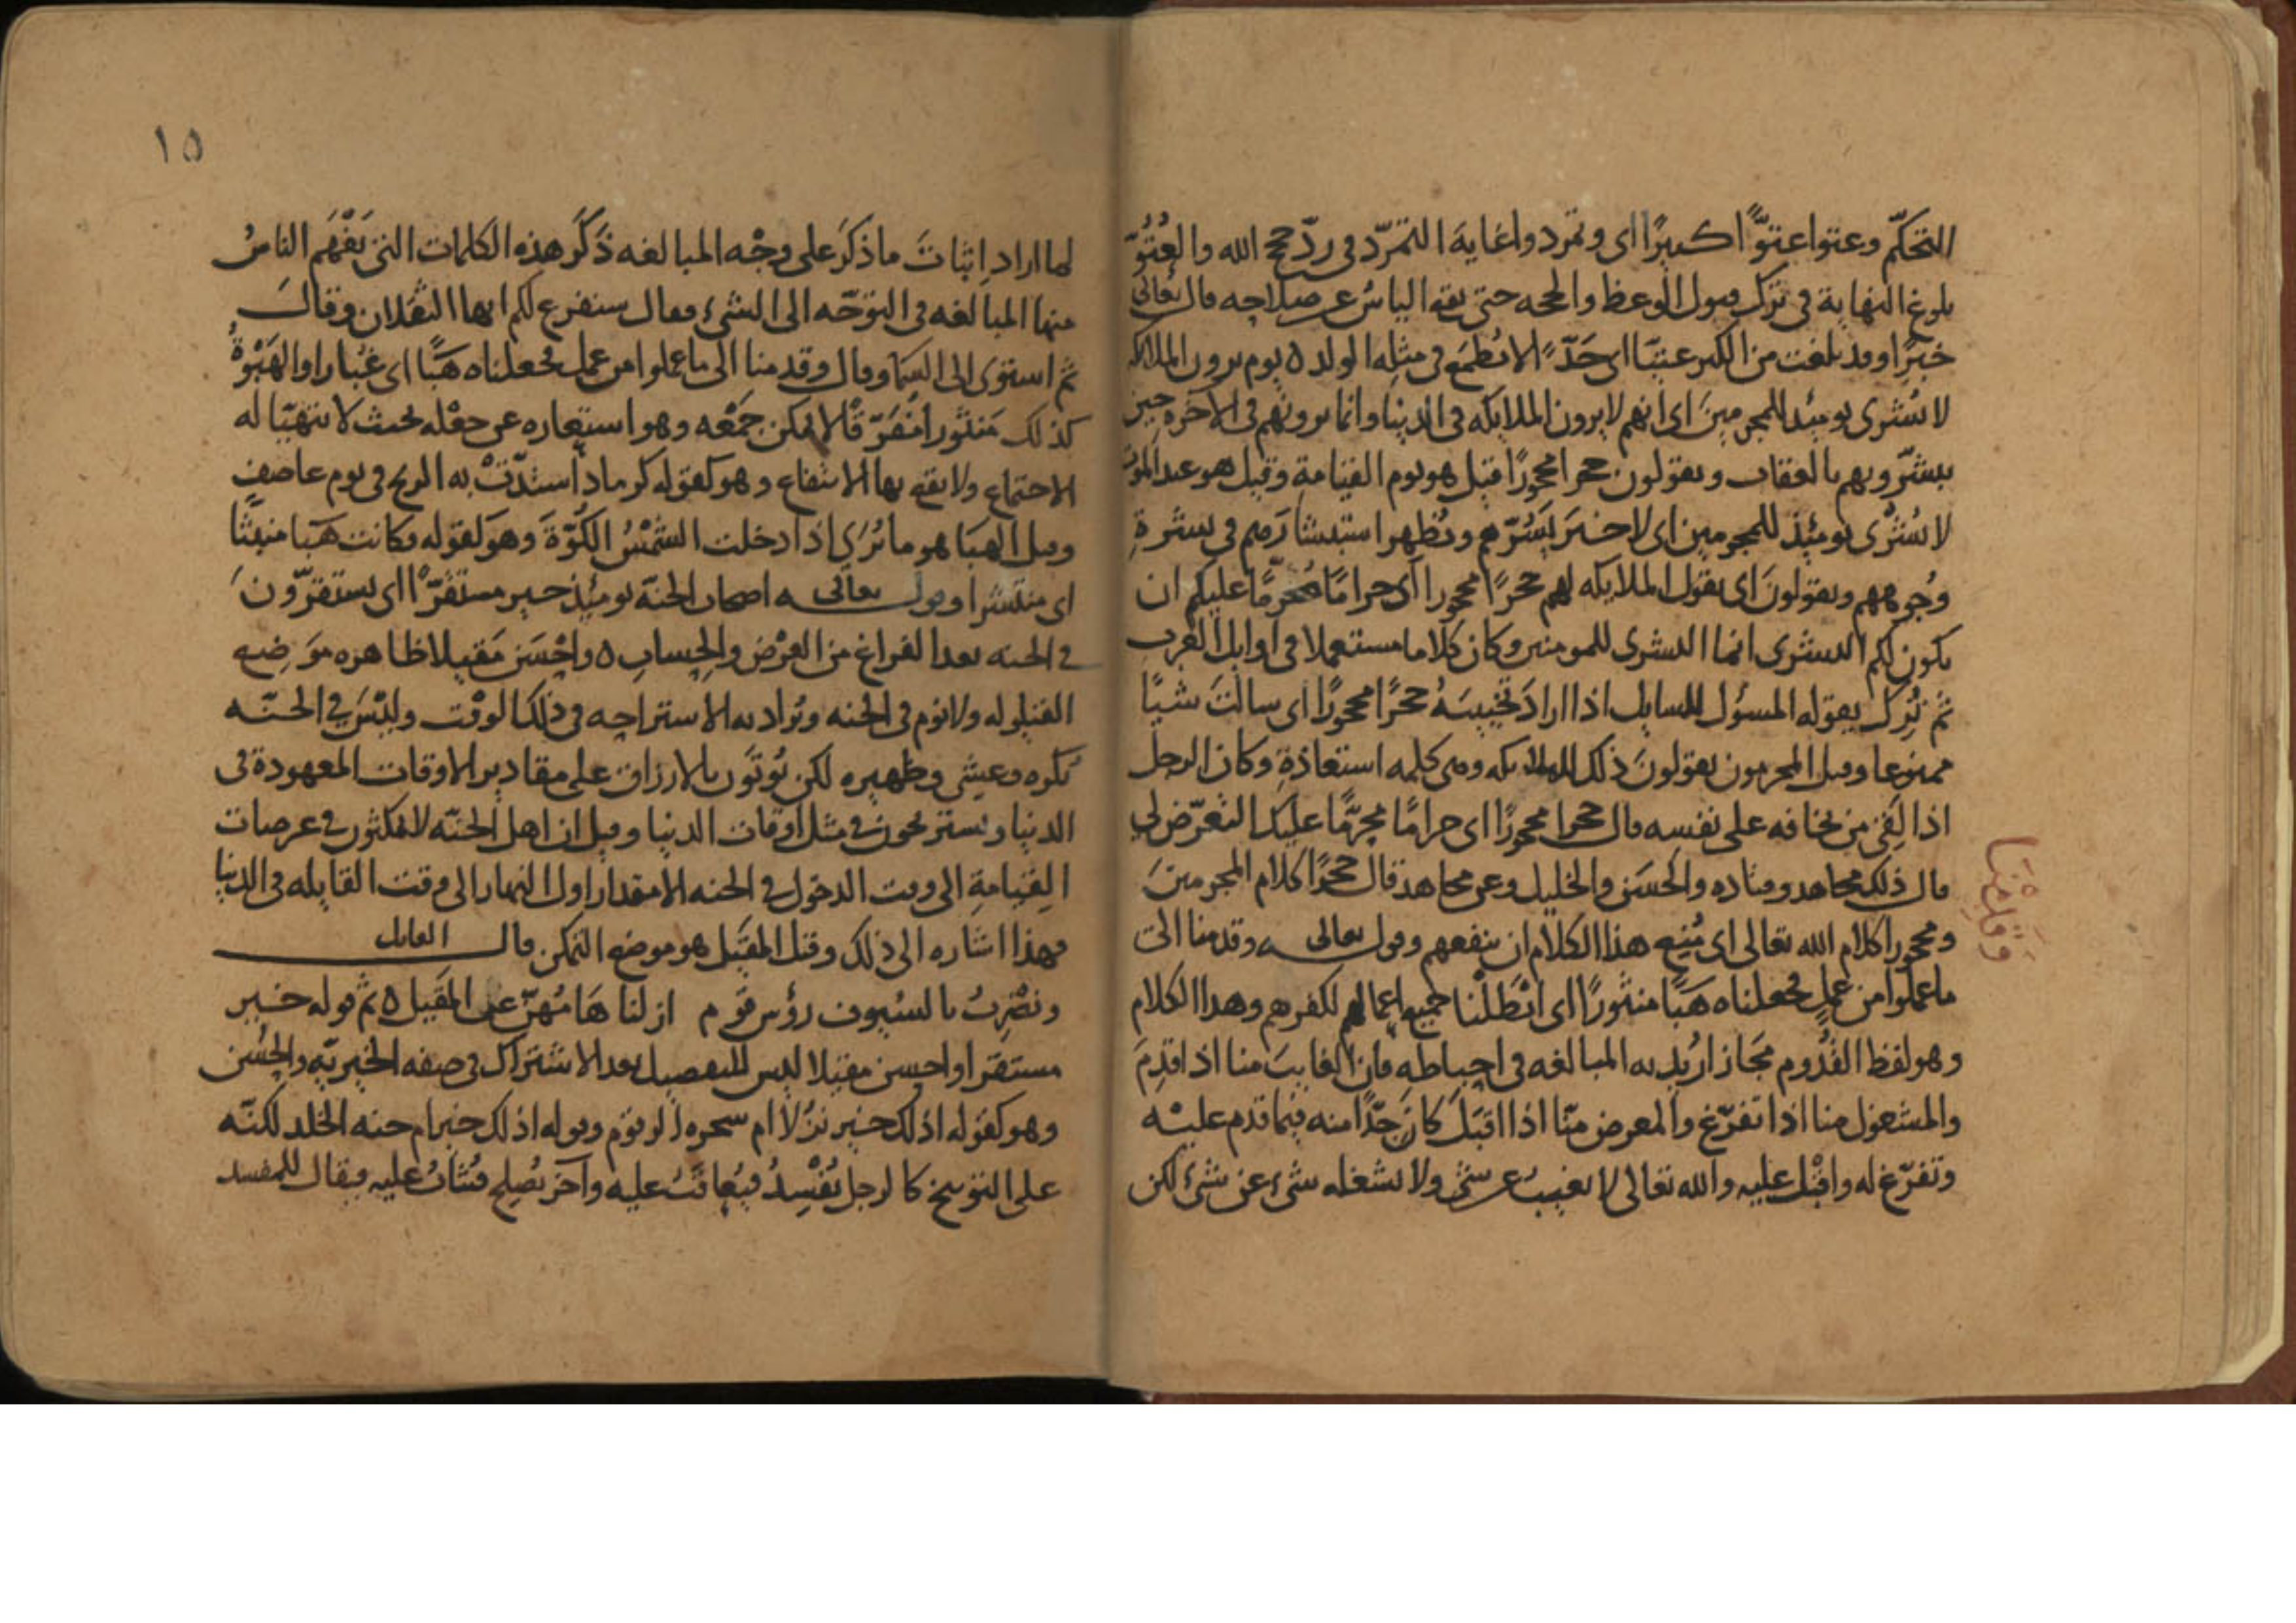 التحكّم وعتوا عتوًّا كبيرًا اى وتمردوا غاية التمرّد فى ردّ حجج الله والعُتوّ
بلوغ النهاية فى ترك قبول الوعظ والحجه حتى يقع الياسُ عن صلاحه قال تعالى
خبرًا وقد بلغت من الكبر عتيّا اى حَدًّا لا يُطمَع فى مثله الولد ٥ يوم يرون الملايكه
لا بُشرى يوميذ للمجرمينَ اى انهم لا يرون الملايكه فى الدنيا وانما يرونهم فى الآخره حين
يبشّرونهم بالعقاب ويقولون حجرا محجورًا قيل هو يوم القيامة وقيل هو عند الموت
لا بُشرى يومئِذ للمجرمين اى لا خبرَ يَسُرّهم ويُظهر استبشارَهم فى بشرةِ
وُجوههم ويقولونَ اى يقول الملايكه لهم حجرًا محجورا اى حرامًا مُحرّمًا عليكم ان
يكون لكم البشرى انما البشرى للمومنين وكان كلاما مستعملا فى اوايل العرب
ثم تُرِك يقوله المسؤل للسايل اذا ارادَ تخييبَهُ حجرًا محجورًا اى سالتَ شيًا
ممنوعا وقيل المجرمون يقولونَ ذلك للملايكه وهى كلمه استعاذةٍ وكان الرجل
اذا لَقِىَ من يخافه على نفسه قال حجرا محجورًا اى حرامًا محرّمًا عليك التعرّض لى
قال ذلك مجاهد وقتاده والحسَن والخليل وعن مجاهد قال حجرًا كلام المجرمينَ
ومحجورا كلام الله تعالى اى مُنِع هذا الكلام ان ينفعهم وقول تعالى ـه وقدمنا الى
وَقَدِمْنَا
ما عملوا من عملٍ فجعلناه هَبًا منثورًا اى ابْطَلْنا جميع اعمالهم لكفرهم وهذا الكلام
وهو لفظ القُدوم مَجاز اريد به المبالغه فى احباطه فان الغايبَ منا اذا قدِمَ
والمشغول منا اذا تفرّغ والمعرض منّا اذا اقبَل كان جَدًّا منه فيما قدم عليه
وتفرّغ له واقْبل عليه والله تعالى لا يغيبُ عن شئ ولا يشغله شئ عن شئ لكن
١٥
لما اراد اِثباتَ ما ذكرَ على وجْه المبالغه ذَكَر هذه الكلمات التى يَفْهَم الناسُ
منها المبالغه فى التوجّه الى الشئ وقال سنفرغ لكم ايها الثقلان وقالَ
ثم استوى الى السما وقال وقدمنا الى ما عملوا من عمل فجعلناه هَبًا اى غُبارا والهَبْوةُ
كذلك مَنثورا مُفَرّقًا لا يمكن جمْعه وهو استعاره عن جعْله بحيث لا يتهيّا له
الاجتماع ولا يقع بها الانتفاع وهو كقوله كرماد اشتدّتْ به الريح فى يوم عاصف
وقيل الهبَا هو ما يُرى اذا دخلت الشمْسُ الكُوّةَ وهو كقوله فكانت هَبَا منبثًّا
اى منتشرا وقول تعالى ـه اصحاب الجنّة يومئِذ خير مستقرًّا اى يستقرّونَ
فى الجنه بعد الفراغ من العَرْض والحِسابِ ٥ واحْسَن مَقيلا ظاهره مَوضِع
القيلوله ولا نوم فى الجنه ويُراد به الاستراحه فى ذلك الوقْت وليْسَ فى الجنّـه
بُكره وعِشى وظهيره لكن يُوتَون بالارزاق على مقادير الاوقات المعهودة فى
الدنيا ويستريحون فى مثل اوقات الدنيا وقيل ان اهل الجنّه لا يمكثون فى عرصات
القيامةِ الى وقت الدخول فى الجنه الا مقدار اول النهار الى وقت القايله فى الدنيا
فهذا اشاره الى ذلك وقيل المقيل هو موضع التمكن قال القايل
ونضْرِبُ بالسُيوف رؤس قوم ازلنا هَامَهُنّ عن المَقيل ٥ ثم قوله خير
مستقرا واحسن مقيلا ليس للتفصيل بعد الاشتراك فى صفه الخيريّه والحُسْن
وهو كقوله اذلك خير نُزُلا ام شجره الزقوم وقوله اذلك خير ام جنه الخلد لكنّه
على التوبيخ كالرجل يُفْسِدُ فيُعاقَبُ عليه وآخر يُصلِح فيُثابُ عليه فيقال للمفسد